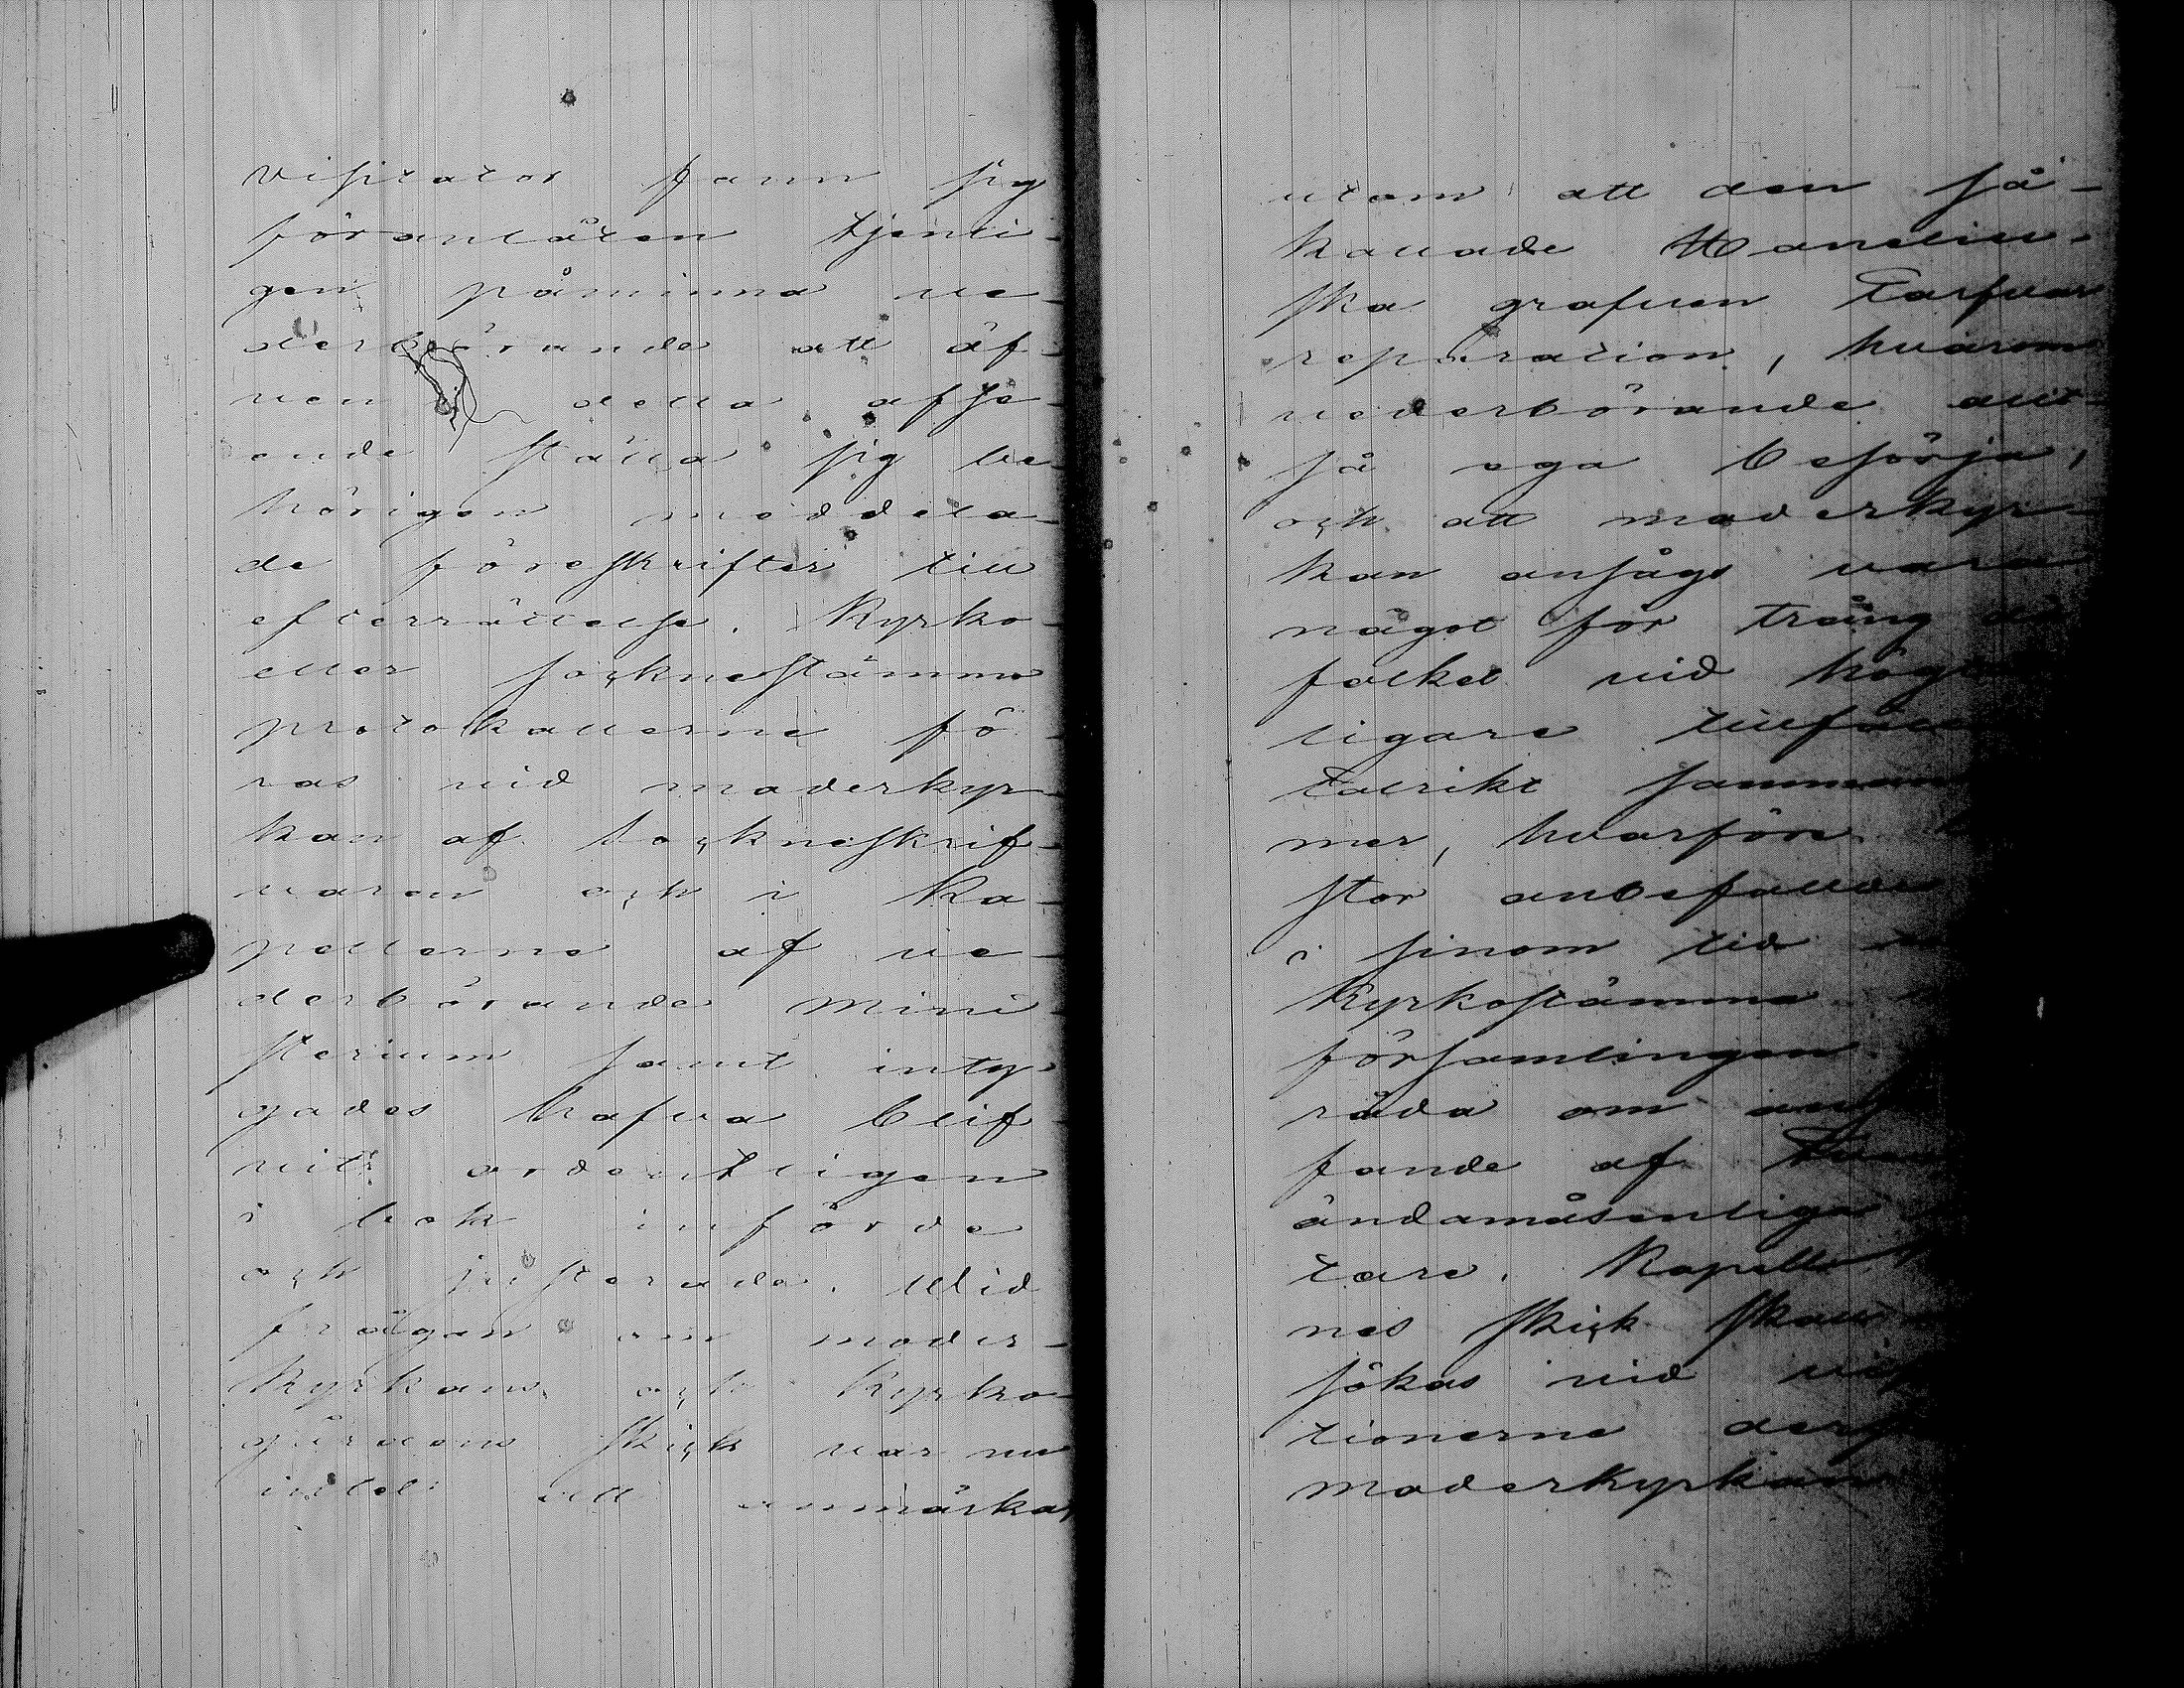 visitator fann sig
föranlåten tjenli-
gen påminna ve-
derbörande att äf-
ven detta afse-
ende ställa sig be-
hörigen meddela-
de föreskrifter till
efterrättelse. Kyrko-
eller socknestämmo
protokollerne fö-
ras vid moderkyr-
kan af sockneskrif-
varen och i Ka-
pellerne af ve-
derbörande Mini-
sterium samt inty-
gades hafva blif-
vit ordentligen
i bok införde
och justerade. Vid
frågan om moder-
kyrkans och kyrko-
gårdens skick var nu
intet att anmärka,
utom att den så-
kallade
ska grafven tarfvar
reparation, hvarom
vederbörande allt-
så ega besörja,
och att moderkyr-
kan ansågs vara
något för trång då
folket vid
ligare
talrikt
mer, hvarföre
stor anbefalldes
i sinom tid
Kyrkostämma
församlingen
råda om
fande af
ändamåsenliga
tare. Kapeller
nes skick skall
sökas vid
tionerne
moderkyrkan